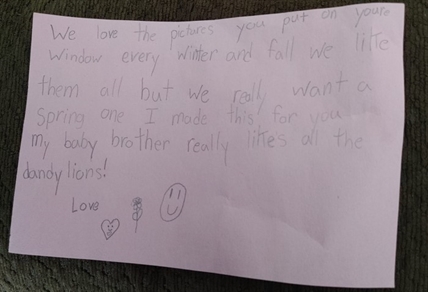 We love the pictures you put on youre
window every winter and fall we like
them all but we really want a
spring one I made this for you
my baby brother really likes all the
dandy lions!
Love